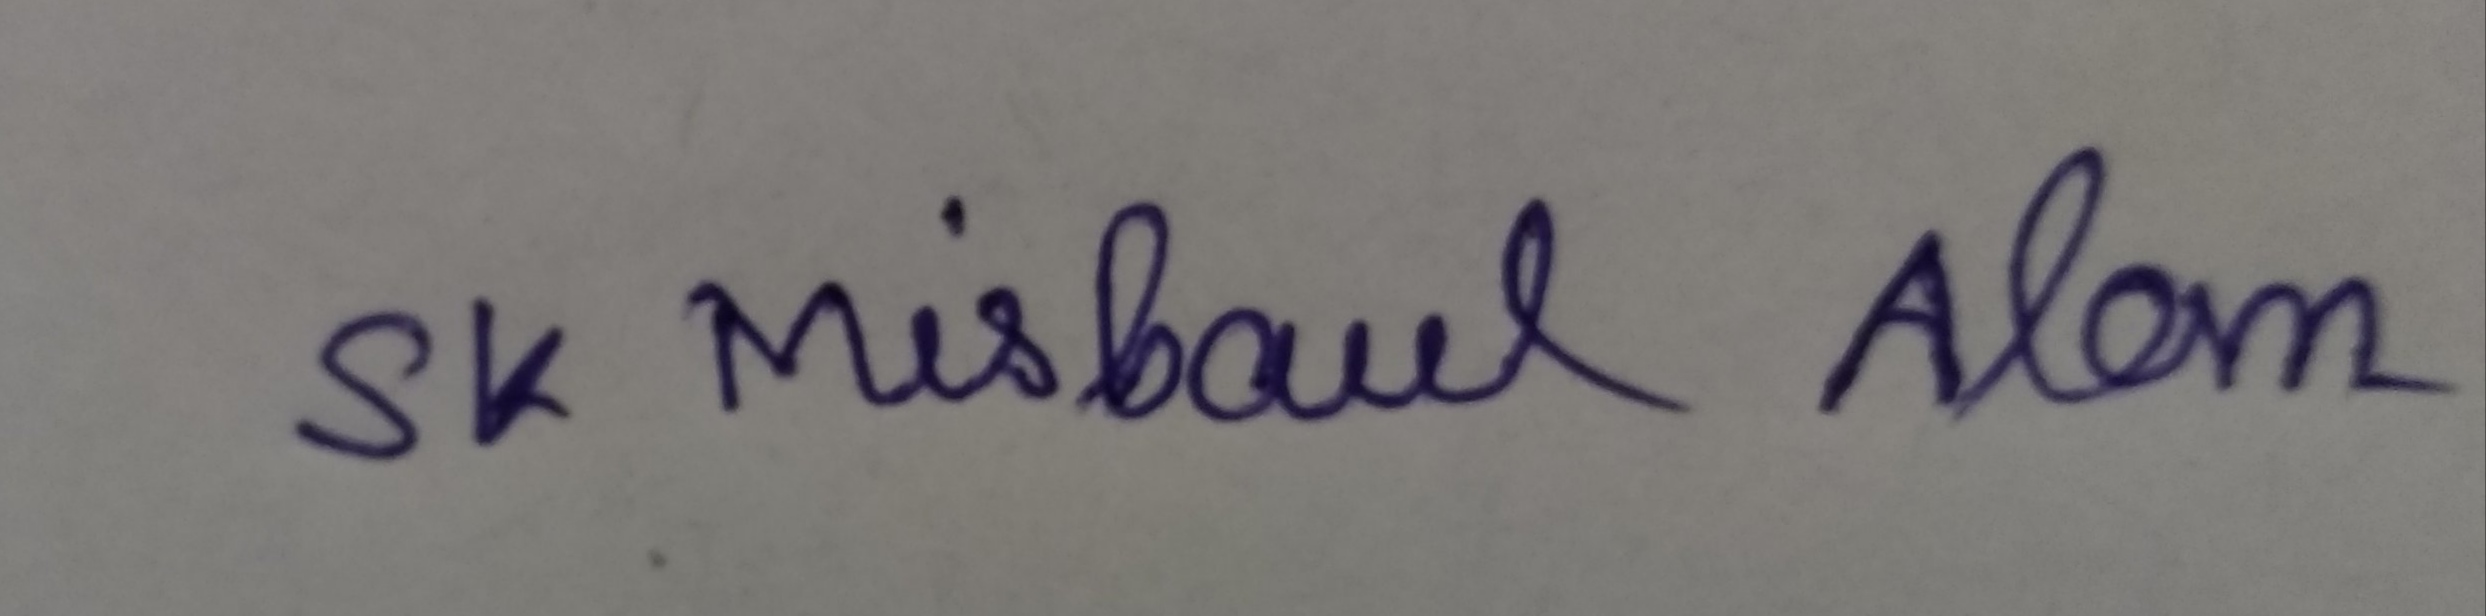 SK Misbaul Alam